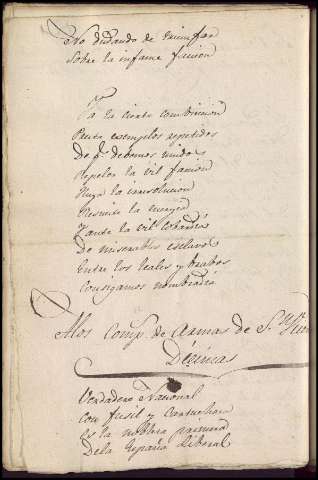 No dudando de triunfar
Sobre la infame faccion
Ya la cierta combiccion
Por tu exemplos repetidos
De q.e debemos unidos
Repeler la vil faccion
Huya la irresolucion
Resuite la energia
Y ante la vil cobardia
De miserables esclavos
Entre los leales y brabos
Consigamos nombradia
A los Comp.s de Armas de S.n
Décimas
Verdadero Nacional
con fusil y cartuchera
es la nobleza primera
De la España liberal